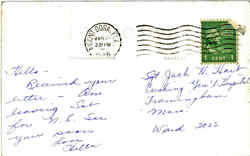 MOUNT DORA, FLA.
1 CENT 1
Hello -
Received your
letter - Am
leaving Sat
for N.C. See
you soon
Love
Helen
Sgt Jack H. Hart
Cushing Gen'l Hospital
Framingham
Mass.
Ward 2022